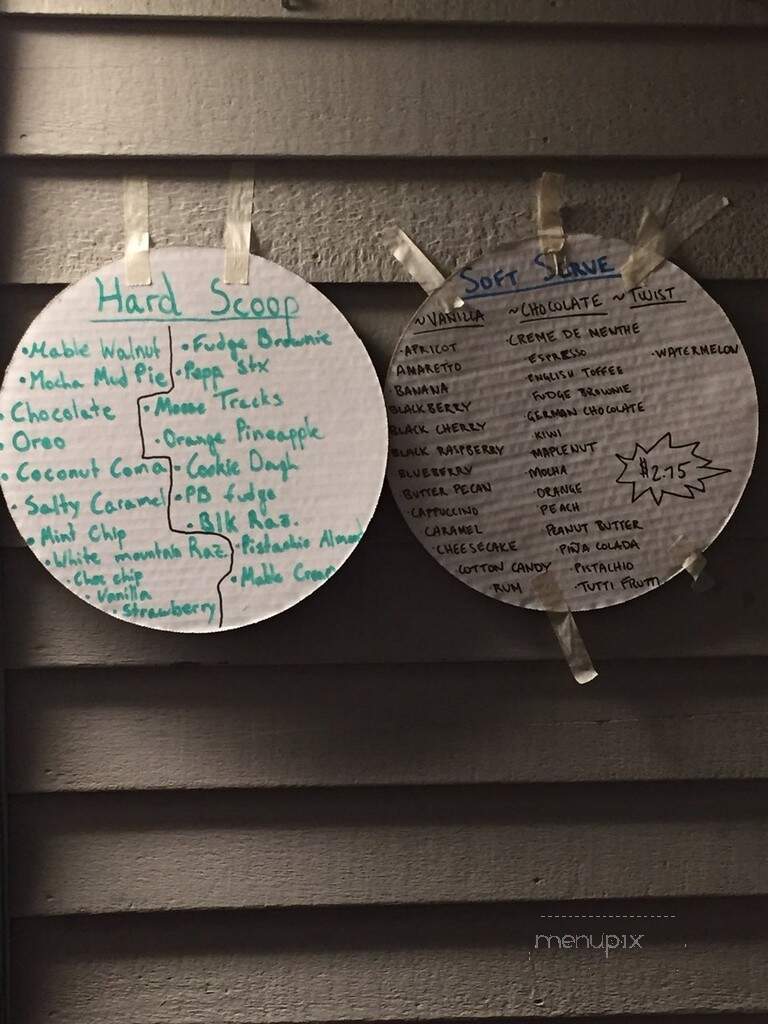 Hard Scoop
•Mable Walnut
•Mocha Mud Pie
•Chocolate
•Oreo
•Coconut Coma
•Salty Caramel
•Mint Chip
•White mountain Raz.
•Choc chip
•Vanilla
•Strawberry
•Fudge Brownie
•Pepp Stx
•Moose Tracks
•Orange Pineapple
•Cookie Dough
•PB fudge
•Blk Raz.
•Pistachio Almond
•Mable Cream
SOFT SERVE
~VANILLA ~CHOCOLATE ~TWIST
•APRICOT
AMARETTO
BANANA
BLACKBERRY
BLACK CHERRY
BLACK RASPBERRY
BLUEBERRY
•BUTTER PECAN
•CAPPUCCINO
CARAMEL
•CHEESECAKE
COTTON CANDY
•RUM
•CREME DE MENTHE
•ESPRESSO
•ENGLISH TOFFEE
FUDGE BROWNIE
•GERMAN CHOCOLATE
KIWI
MAPLENUT
•MOCHA
ORANGE
PEACH
PEANUT BUTTER
•PIÑA COLADA
•PISTACHIO
•TUTTI FRUTTI
•WATERMELON
$2.75
menupix